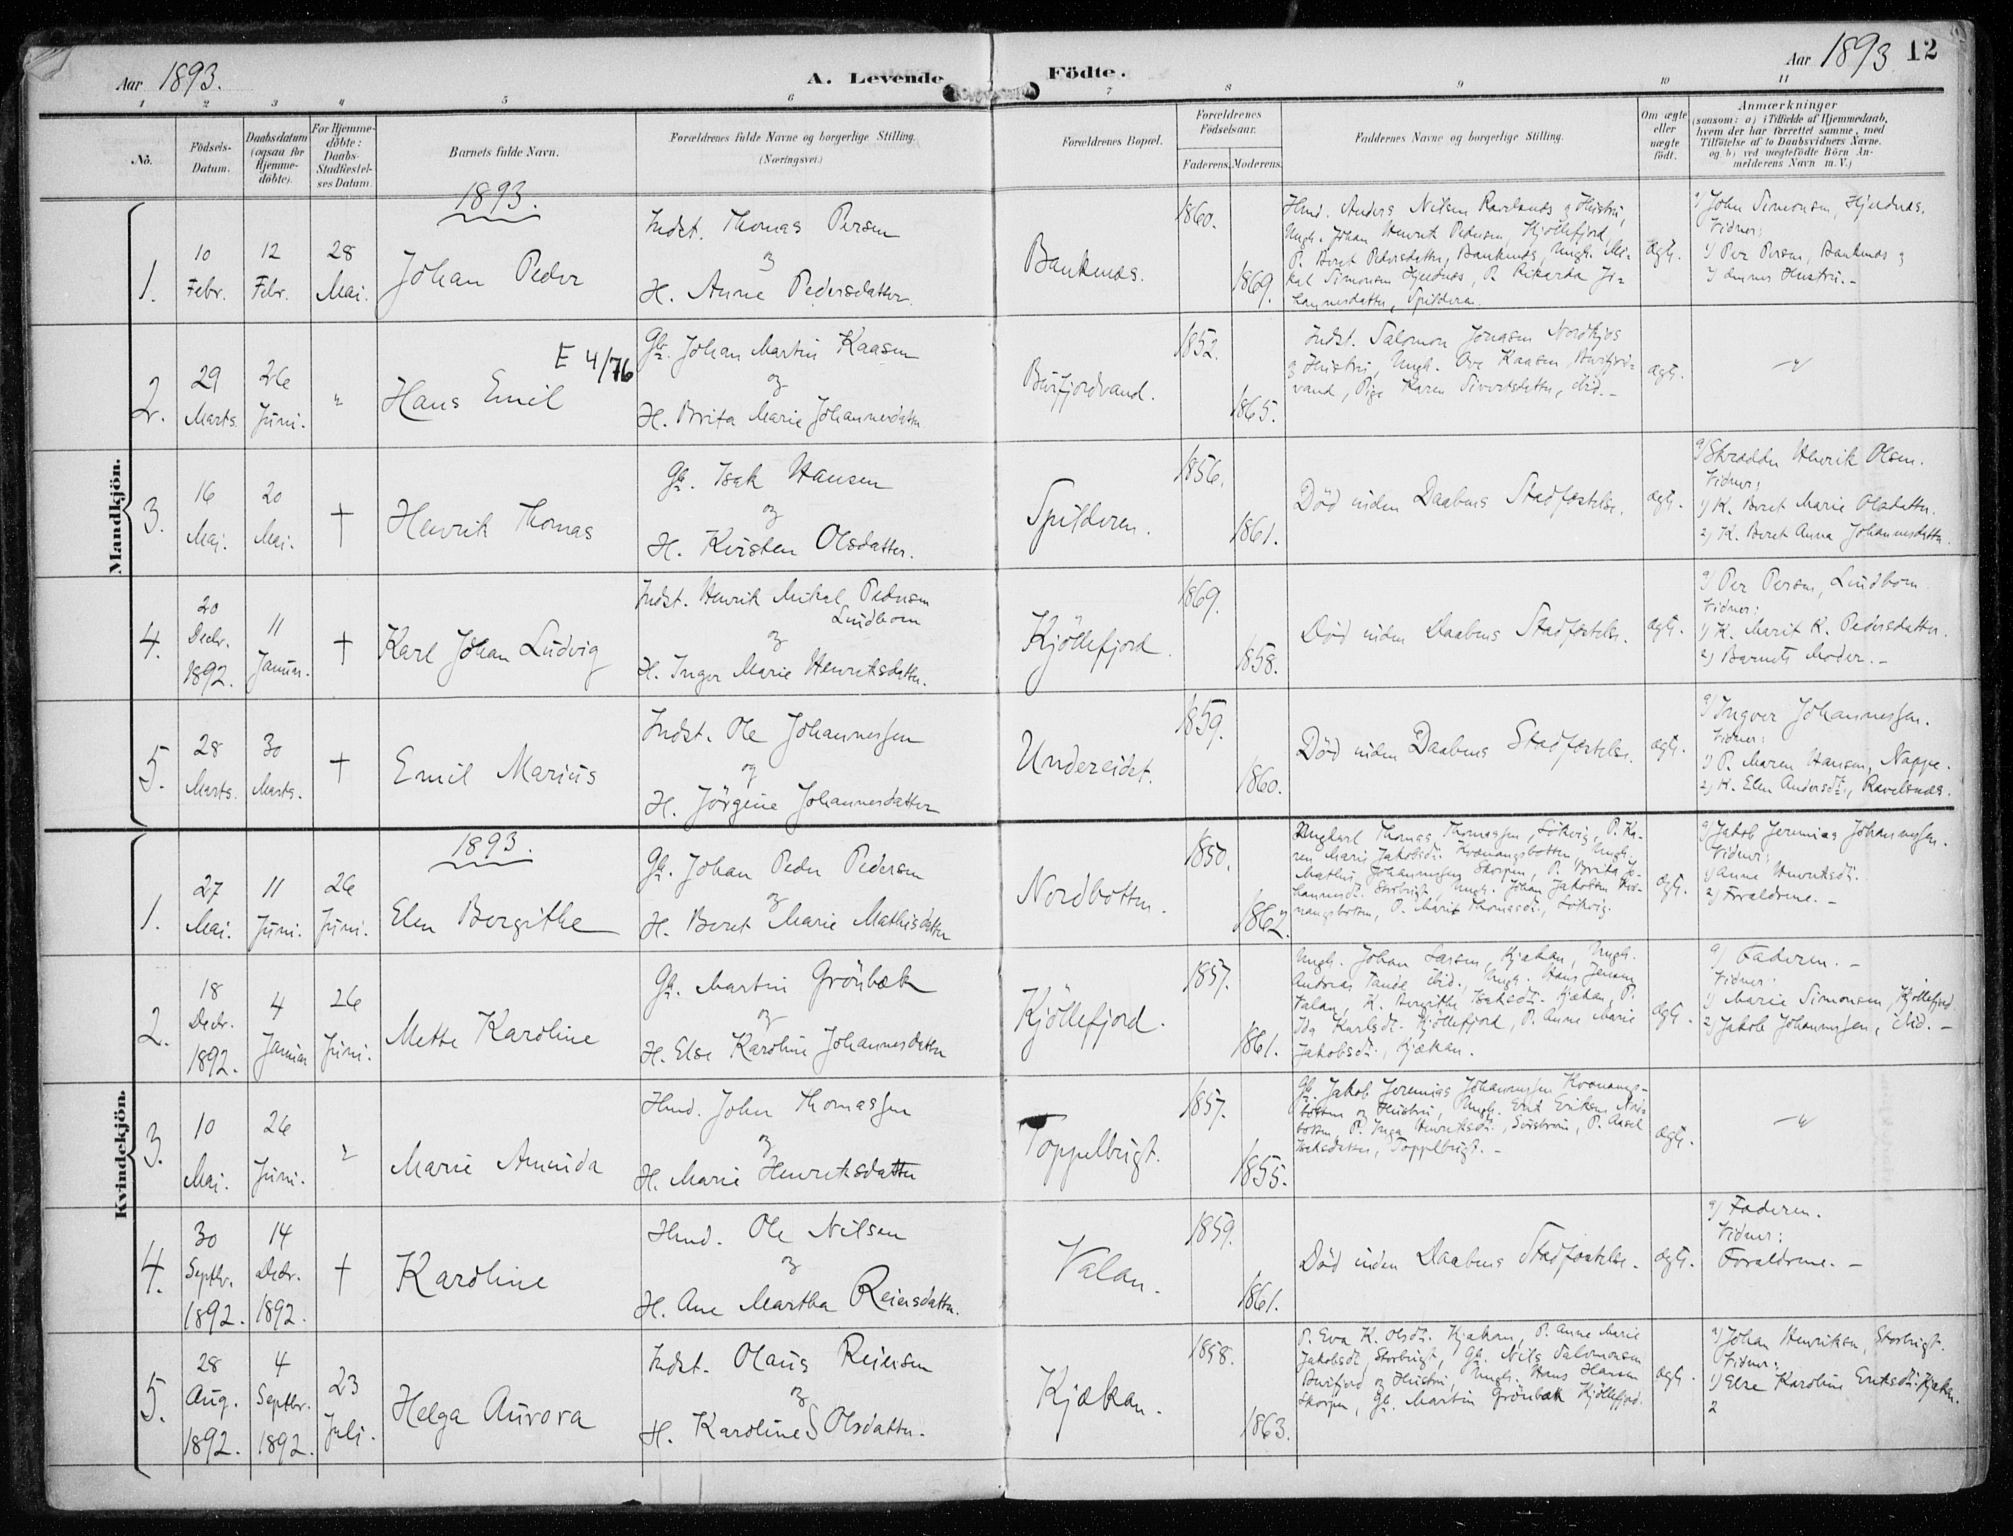 Aar 1893.
A. Levende Födte.
Aar 1893 12
1 2 3 4 5 6 7 8 9 10 11
No.
Födsels-Datum.
Daabsdatum (ogsaa for Hjemme-döbte).
For Hjemme-döbte: Daabs-Stadfæstel-ses Datum.
Barnets fulde Navn.
Forældrenes fulde Navne og borgerlige Stilling.
(Næringsvei.)
Forældrenes Bopæl.
Forældrenes Födselsaar.
Faderens. Moderens.
Faddernes Navne og borgerlige Stilling.
Om ægte eller uægte födt.
Anmærkninger
(saasom: a) i Tilfælde af Hjemmedaab,
hvem der har forrettet samme, med
Tilföielse af to Daabsvidners Navne.
og b) ved uægtefödte Börn An-
melderens Navn m. V.)
Mandkjön.
1893.
1.
10 Febr.
12 Febr.
28 Mai.
Johan Peder
Indst. Thomas Persen
og
H. Anne Pedersdatter
Bankenæs.
1860.
1869.
Hmd. Anders Nilsen Ravelsnæs og Hustru,
Ungk. Johan Henrik Pedersen Kjöllefjord,
P. Beret Pedersdatter, Bankenæs, Ungk. Mi-
kal Simonsen Hjellnæs, P. Rikarda Jo-
hannesdatter, Spilderen.
ægte.
a) John Simonsen, Hjellnæs.
Vidner:
1) Per Persen, Bankenæs og
2) dennes Hustru. -
2.
29 Marts.
26 Juni.
"
Hans Emil
E 4/76
Gbr. Johan Martin Kaasen
og
H. Brita Marie Johannesdatter
Burfjordvand.
1852.
1865.
Indst. Salomon Jonasen Nordkjos
og Hustru, Ungk. Ove Kaasen, Burfjord-
vand, Pige Karen Sivertsdatter, ibid. -
ægte.
"
3.
16 Mai.
20 Mai.
†
Henrik Thomas
Gb. Isak Hansen
og
H. Kirsten Olsdatter.
Spilderen.
1856.
1861.
Död inden Daabens Stadfæstelse.
ægte.
a) Skrædder Henrik Olsen.
Vidner:
1) K. Beret Marie Olsdatter.
2) K. Beret Anna Johannesdatter.
4.
20 Decbr. 1892.
11 Januar.
†
Karl Johan Ludvig
Indst. Henrik Mikal Pedersen
Lindbom
og
H. Inger Marie Henriksdatter.
Kjöllefjord.
1869.
1858.
Död inden Daabens Stadfæstelse.
ægte.
a) Per Persen, Lindbom
Vidner:
1) K. Marit K. Pedersdatter.
2) Barnets Moder. -
5.
28 Marts.
30 Marts.
†
Emil Marius
Indst. Ole Johannessen
og
H. Jörgine Johannesdatter
Undereidet.
1859.
1860.
Död inden Daabens Stadfæstelse.
ægte.
a) Ingver Johannessen.
Vidner:
1) P. Maren Hansen, Nappe.
2) K. Elen Andersdt., Ravelsnæs.
Kvindekjön.
1893.
1.
27 Mai.
11 Juni.
26 Juni.
Elen Bergithe
Gb. Johan Peder Pedersen
og
H. Beret Marie Mathisdatter
Nordbotten.
1850.
1862.
Ungkarl Thomas Thomassen, Sökvig, P. Ka-
ren Marie Jakobsdt. Kvænangsbotten, Ungk.
Mathis Johannesen Skorpen, P. Brita Jo-
hannesdt. Storbugt, Ungk. Johan Jakobsen Kvæ-
nangsbotten, P. Marit Thomasdt., Sökvig.
ægte.
a) Jakob Jeremias Johannessen.
Vidner:
1) Anne Henriksdt.
2) Forældrene. -
2.
18 Decbr. 1892.
4 Januar
26 Juni.
Mette Karoline
Gb. Martin Grönbæk
og
H. Else Karoline Johannesdatter
Kjöllefjord.
1857.
1861.
Ungk. Johan Larsen, Kjækan, Ungk.
Andreas Tande ibid., Ungk. Hans Jensen
Valan, K. Berithe Isaksdt. Kjækan, P.
Ida Karlsdt. Kjöllefjord, P. Anne Marie
Jakobsdt., Kjækan.
ægte.
a) Faderen. -
Vidner:
1) Marie Simonsen, Kjöllefjord
2) Jakob Johannessen, ibid. -
3.
10 Mai.
26 Juni.
"
Marie Aminda
Hmd. John Thomassen
og
H. Marie Henriksdatter
Toppelbugt.
1857.
1855.
Gb. Jakob Jeremias Johannessen Kvænangs-
botten og Hustru, Ungk. Erik Eriksen Nord-
botten, P. Inga Henriksdt., P. Aasel
Isaksdatter, Toppelbugt. -
ægte.
"
4.
30 Septbr. 1892.
14 Decbr. 1892.
†
Karoline
Hmd. Ole Nilsen
og
H. Ane Martha Reiersdatter.
Valan.
1859.
1861.
Död inden Daabens Stadfæstelse.
ægte.
a) Faderen.
Vidner:
Forældrene. -
5.
28 Aug. 1892.
4 Septbr. 1892.
23 Juli.
Helga Aurora
Indst. Olaus Reiersen
og
H. Karoline S Olsdatter.
Kjækan.
1858.
1863.
P. Eva K. Olsdt. Kjækan, P. Anne Marie
Jakobsdt., Storbugt, Gb. Nils Salomonsen
Burfjord og Hustru, Ungk. Hans Hansen
Skorpen, Gb. Martin Grönbæk Kjöllefjord.
ægte.
a) Johan Henriksen, Storbugt.
Vidner:
1) Else Karoline Eriksdt. Kjækan.
2